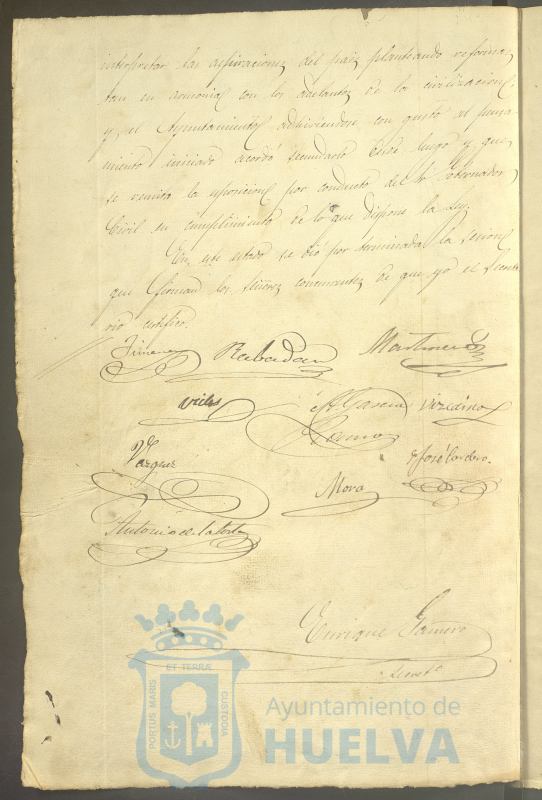 interpretar las aspiraciones del pais planteando reformas
tan en armonia con los adelantos de la civilizacion
y, el Ayuntamiento adhiriendose con gusto al pensa-
miento iniciado acordó secundarlo desde luego y que
se remita la esposicion por conducto del Sr Gobernador
Civil en cumplimiento de lo que dispone la Ley.
En este estado se dió por terminada la sesion
que firman los Señores concurrentes de que yo el Secreta
rio certifico.
Jimenez Rabadan Martinez
A. Garcia
Vazquez
José Cordero
Mora
Antonio de la Corte
Enrique Gamero
Secreto
ET TERRÆ
PORTUS MARIS
CUSTODIA
Ayuntamiento de
HUELVA